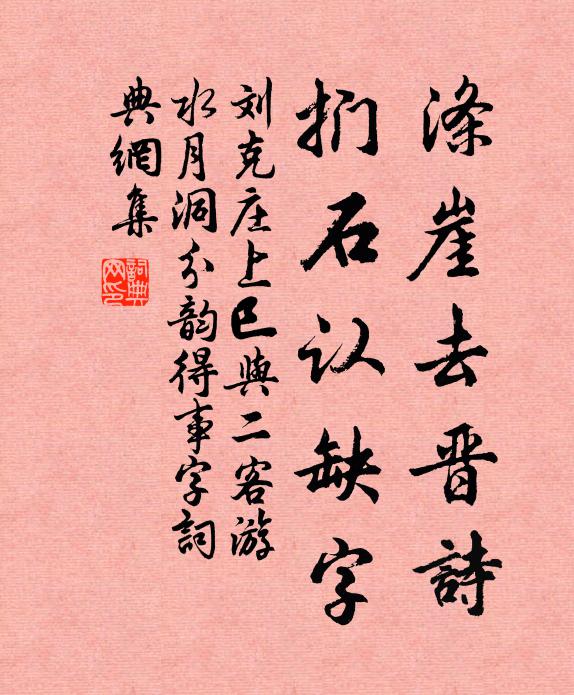 涤崖去晋詩
扪石认缺字
刘克庄上巳與二客游
水月洞分韵得事字詞
典網集
詞典網印